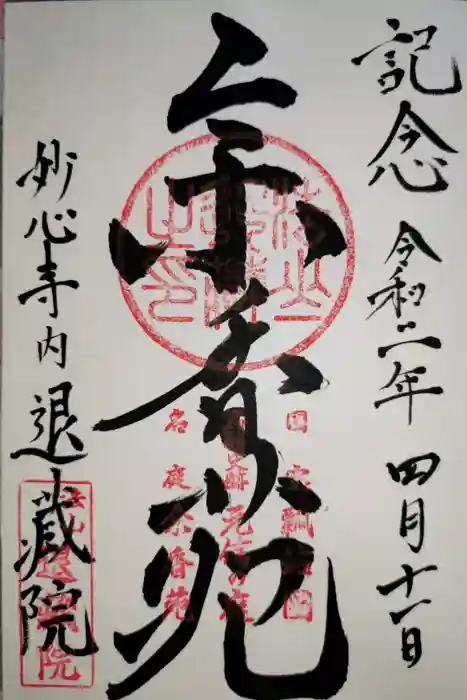 記念 令和二年 四月十一日
余香苑
妙心寺内 退蔵院
国宝瓢鮎図
元信の庭
名庭余香苑